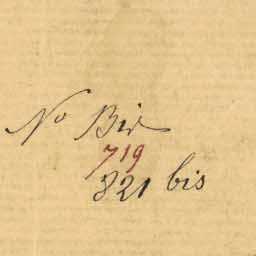 No Bis
719
321 bis